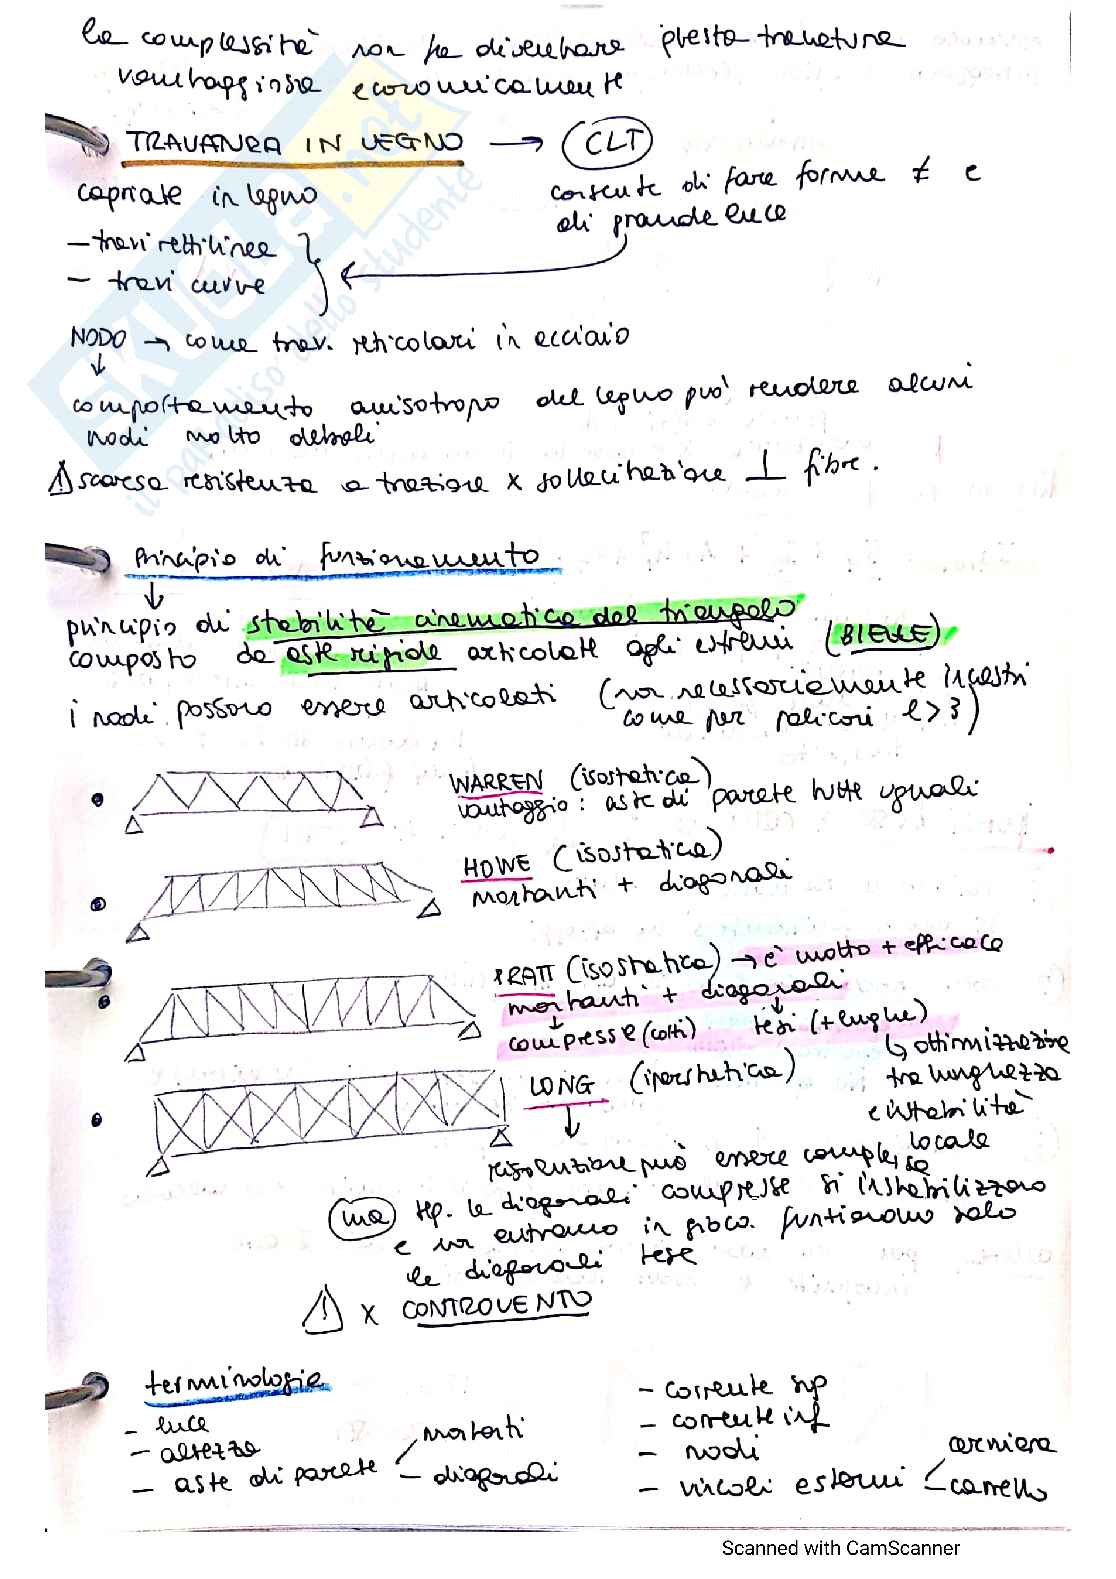 la complessità non fa diventare questa travatura
vantaggiosa economicamente
TRAVATURA IN LEGNO → CLT
capriate in legno
consente di fare forme ≠ e
di grande luce
- travi rettilinee
- travi curve
NODO → come trav. reticolari in acciaio
comportamento anisotropo del legno può rendere alcuni
nodi molto deboli
⚠ scarsa resistenza a trazione x sollecitazione ⊥ fibre.
Principio di funzionamento
principio di stabilità cinematica del triangolo
composto da aste rigide articolate agli estremi (BIELLE)
i nodi possono essere articolati (non necessariamente incastri
come per poligoni l>3)
WARREN (isostatica)
vantaggio: aste di parete tutte uguali
HOWE (isostatica)
montanti + diagonali
PRATT (isostatica) → è molto + efficace
montanti + diagonali
compresse (corti) tesi (+ lunghe)
↳ ottimizzazione
tra lunghezza
e instabilità
locale
LONG (iperstatica)
risoluzione può essere complessa
ma Hp. le diagonali compresse si instabilizzano
e non entrano in gioco. funzionano solo
le diagonali tese
⚠ x CONTROVENTO
terminologia
- luce
- altezza
- aste di parete
montanti
- diagonali
- corrente sup
- corrente inf
- nodi
- vincoli esterni
cerniera
carrello
SKUOLA.not
il paradiso dello studente
Scanned with CamScanner